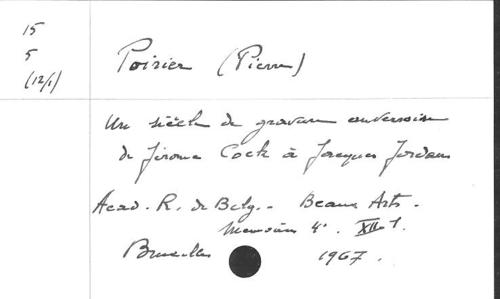 15
5
(12/1)
Poirier (Pierre)
Un siècle de gravure anversoise
de Jérome Cock à Jacques Jordaens
Acad. R. de Belg. - Beaux Arts.
Memoires 4°. XII. 1.
Bruxelles 1967.